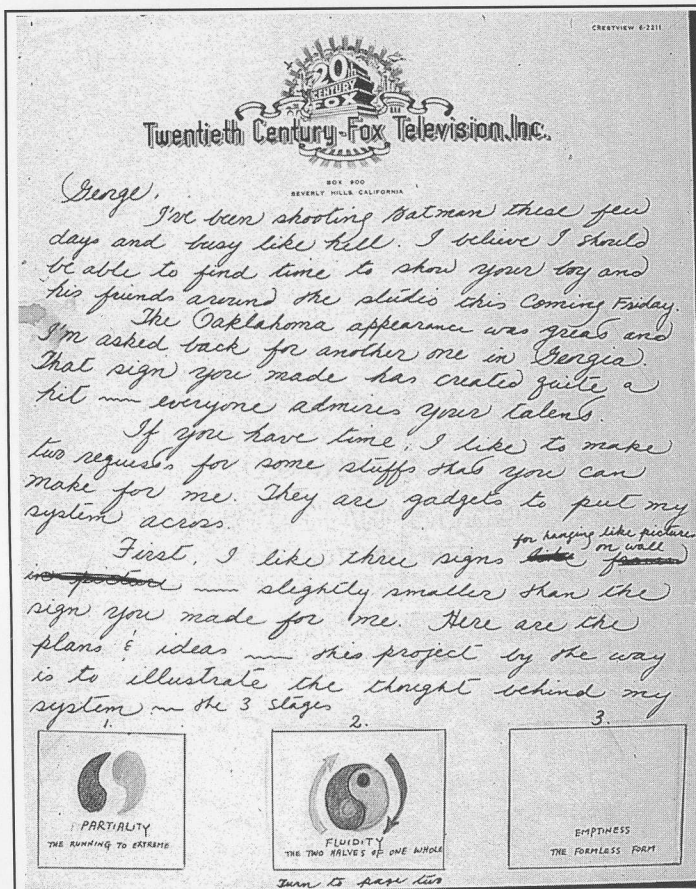 CRESTVIEW 6-2211
20th
CENTURY
FOX
Twentieth Century-Fox Television, Inc.
BOX 900
BEVERLY HILLS, CALIFORNIA
George,
I've been shooting Batman these few
days and busy like hell. I believe I should
be able to find time to show your boy and
his friends around the studio this Coming Friday.
The Oaklahoma appearance was great and
I'm asked back for another one in Georgia.
That sign you made has created quite a
hit — everyone admires your talent.
If you have time, I like to make
two requests for some stuffs that you can
make for me. They are gadgets to put my
system across.
for hanging like pictures
on wall
First, I like three signs
— slightly smaller than the
sign you made for me. Here are the
plans & ideas — this project by the way
is to illustrate the thought behind my
system — the 3 stages
1.
PARTIALITY
THE RUNNING TO EXTREME
2.
FLUIDITY
THE TWO HALVES OF ONE WHOLE
3.
EMPTINESS
THE FORMLESS FORM
Turn to page two